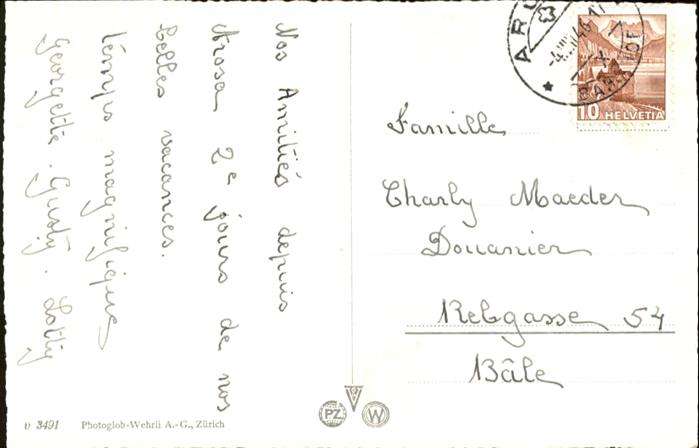 Nos Amitiés depuis
Arosa 2e jours de nos
belles vacances.
Temps magnifique
Georgette. Gusty. Lotty
Famille
Charly Maeder
Douanier
Rebgasse 54
Bâle
10 HELVETIA
PZ
W
3491 Photoglob-Wehrli A.-G., Zürich